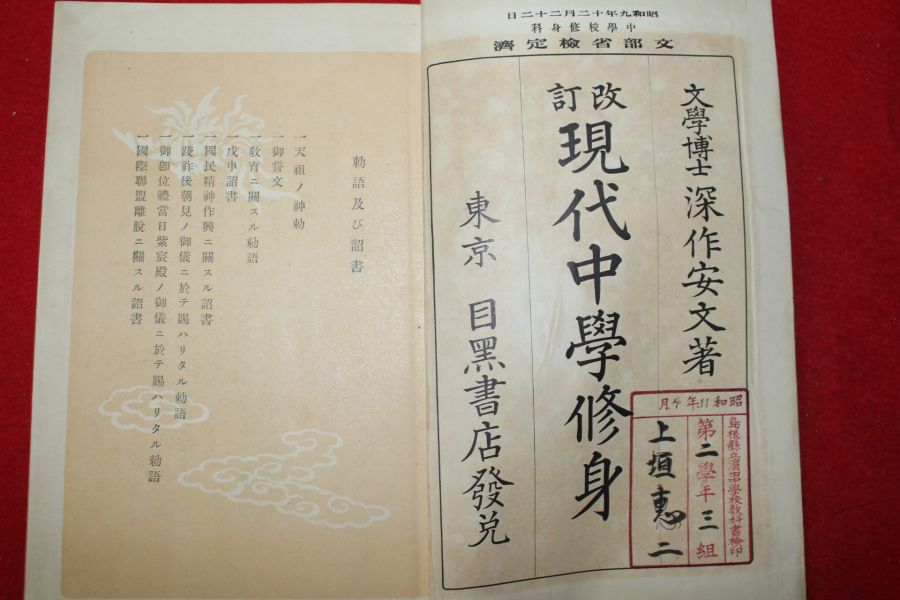 昭和九年十二月二十二日
中學校修身科
文部省檢定濟
文學博士 深作安文著
改訂 現代中學修身
東京 目黑書店發兌
昭和11年4月
島根縣立濱田中學校敎科書檢印
第二學年三組
上垣惠二
勅語及び詔書
一 天祖ノ神勅
一 御誓文
一 敎育ニ關スル勅語
一 戊申詔書
一 國民精神作興ニ關スル詔書
一 踐祚後朝見ノ御儀ニ於テ賜ハリタル勅語
一 御卽位禮當日紫宸殿ノ御儀ニ於テ賜ハリタル勅語
一 國際聯盟離脫ニ關スル詔書